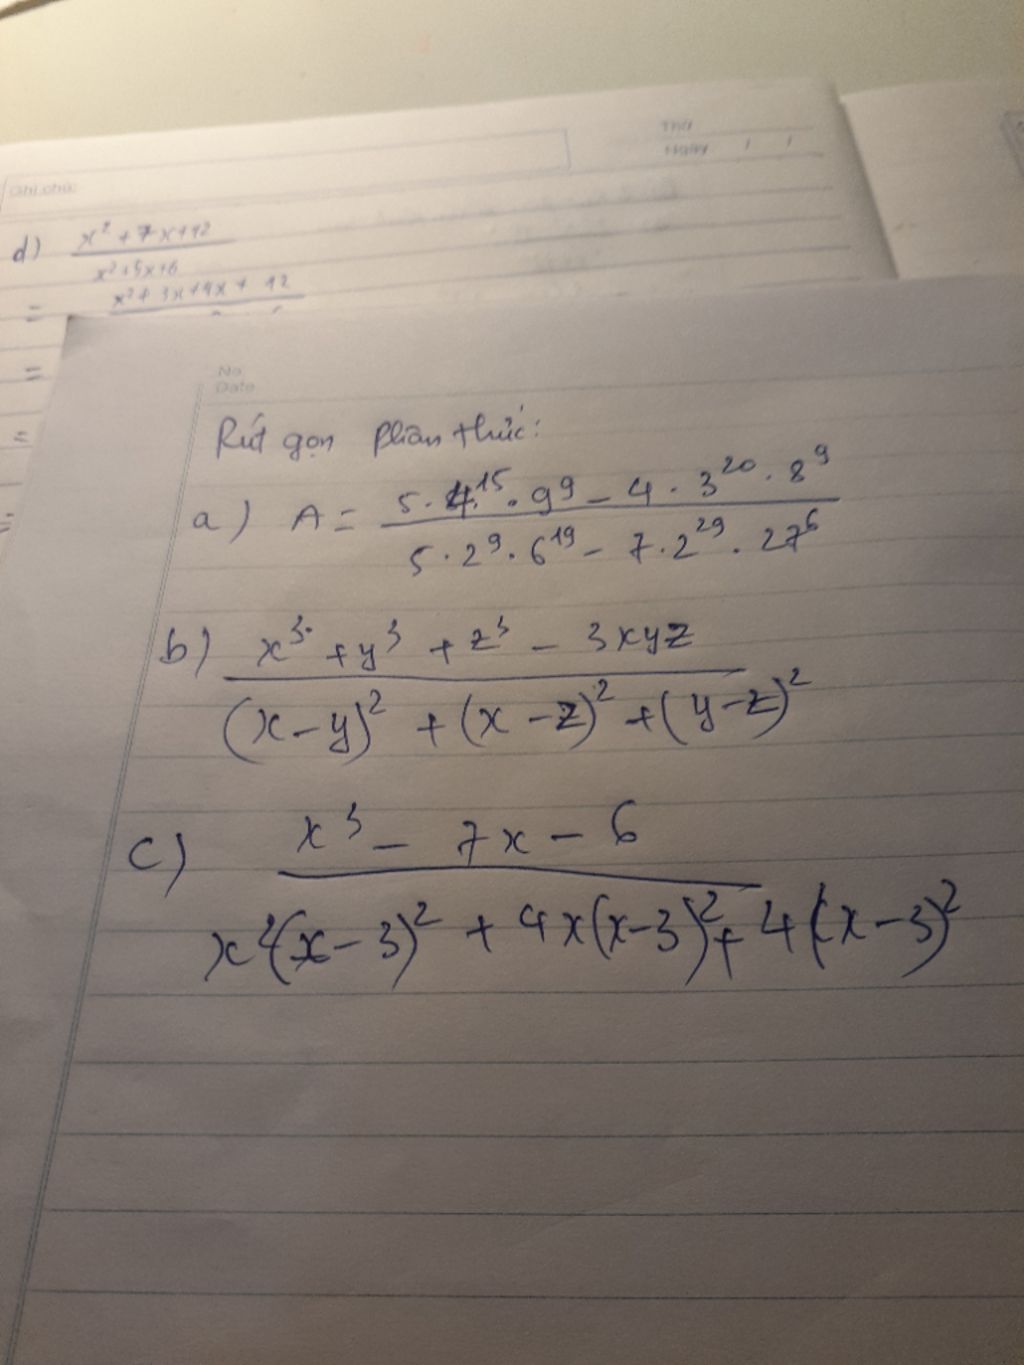 Thứ
Ngày / /
Ghi chú:
d) x² + 7x+12
x²+5x+6
= x²+ 3x+4x + 12
=
=
=
No
Date
Rút gọn phân thức:
a) A = 5 · 4¹⁵ · 9⁹ – 4 · 3²⁰ · 8⁹
5 · 2⁹ · 6¹⁹ – 7 · 2²⁹ · 27⁶
b) x³ + y³ + z³ – 3xyz
(x – y)² + (x – z)² + (y – z)²
c) x³ – 7x – 6
x²(x – 3)² + 4x(x – 3)² + 4(x – 3)²